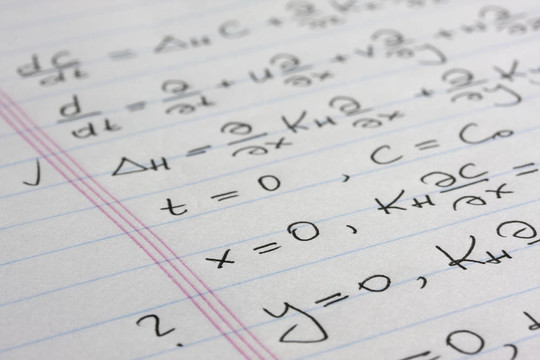 dc/dt = Δ_H C + ∂/∂x K
d/dt = ∂/∂t + u ∂/∂x + v ∂/∂y +
Δ_H = ∂/∂x K_H ∂/∂x + ∂/∂y K
t = 0 , c = c₀
x = 0 , K_H ∂c/∂x =
? y = 0 , K_H ∂
= 0 ,